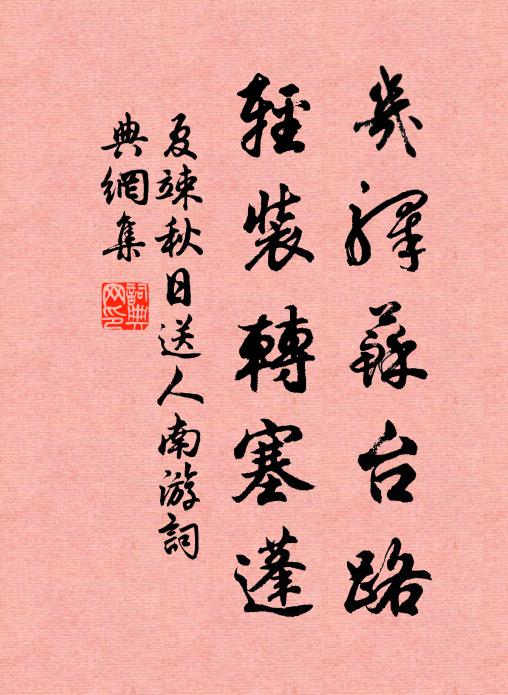 幾驛蘇台路
輕裝轉塞蓬
夏竦秋日送人南游詞
典網集
詞典網印